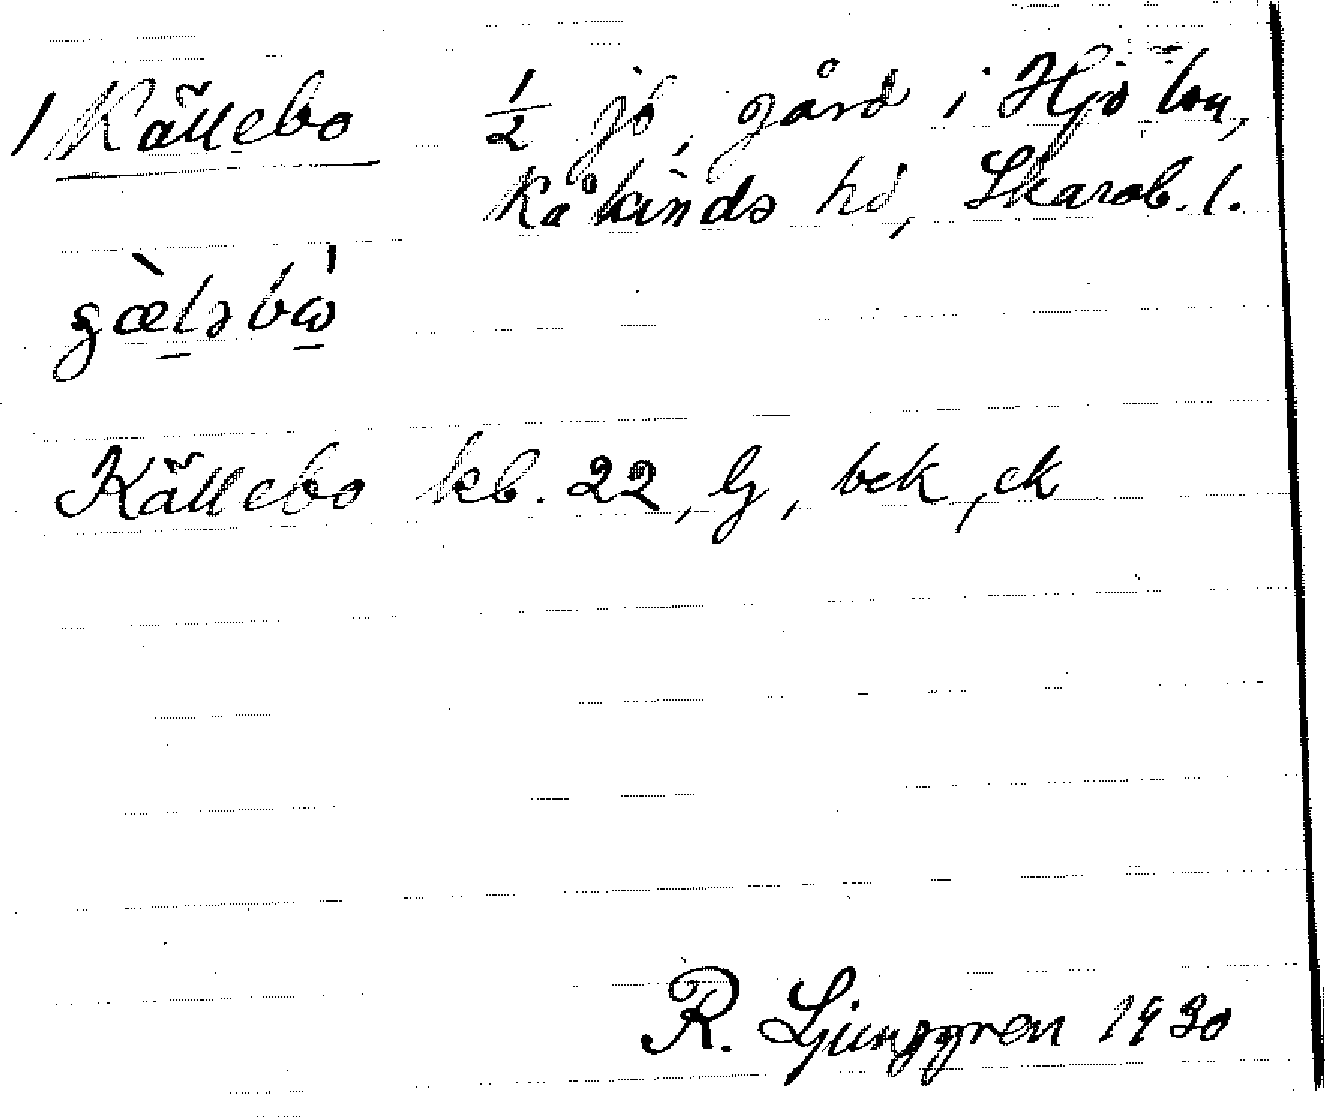 1 Källebo ½ jb, gård i Hjo lou,
Kåkinds hd, Skarab. l.
gæ̀ləbὼ
Källebo kb. 22, lj, bek, ek
R. Ljunggren 1930